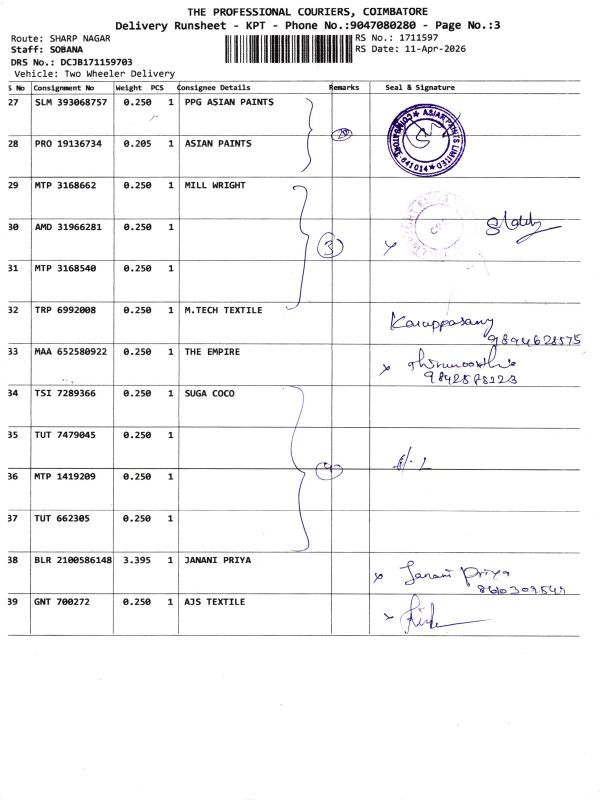 THE PROFESSIONAL COURIERS, COIMBATORE
Delivery Runsheet - KPT - Phone No.:9047080280 - Page No.:3
Route: SHARP NAGAR RS No.: 1711597
Staff: SOBANA RS Date: 11-Apr-2026
DRS No.: DCJB171159703
Vehicle: Two Wheeler Delivery
S No Consignment No Weight PCS Consignee Details Remarks Seal & Signature
27 SLM 393068757 0.250 1 PPG ASIAN PAINTS
28 PRO 19136734 0.205 1 ASIAN PAINTS
ASIAN PAINTS LIMITED COIMBATORE 641014
29 MTP 3168662 0.250 1 MILL WRIGHT
30 AMD 31966281 0.250 1
3
31 MTP 3168540 0.250 1
32 TRP 6992008 0.250 1 M.TECH TEXTILE Karuppasamy
9894628575
33 MAA 652580922 0.250 1 THE EMPIRE
34 TSI 7289366 0.250 1 SUGA COCO
35 TUT 7479045 0.250 1
36 MTP 1419209 0.250 1
37 TUT 662305 0.250 1
38 BLR 2100586148 3.395 1 JANANI PRIYA Janani Priya
39 GNT 700272 0.250 1 AJS TEXTILE